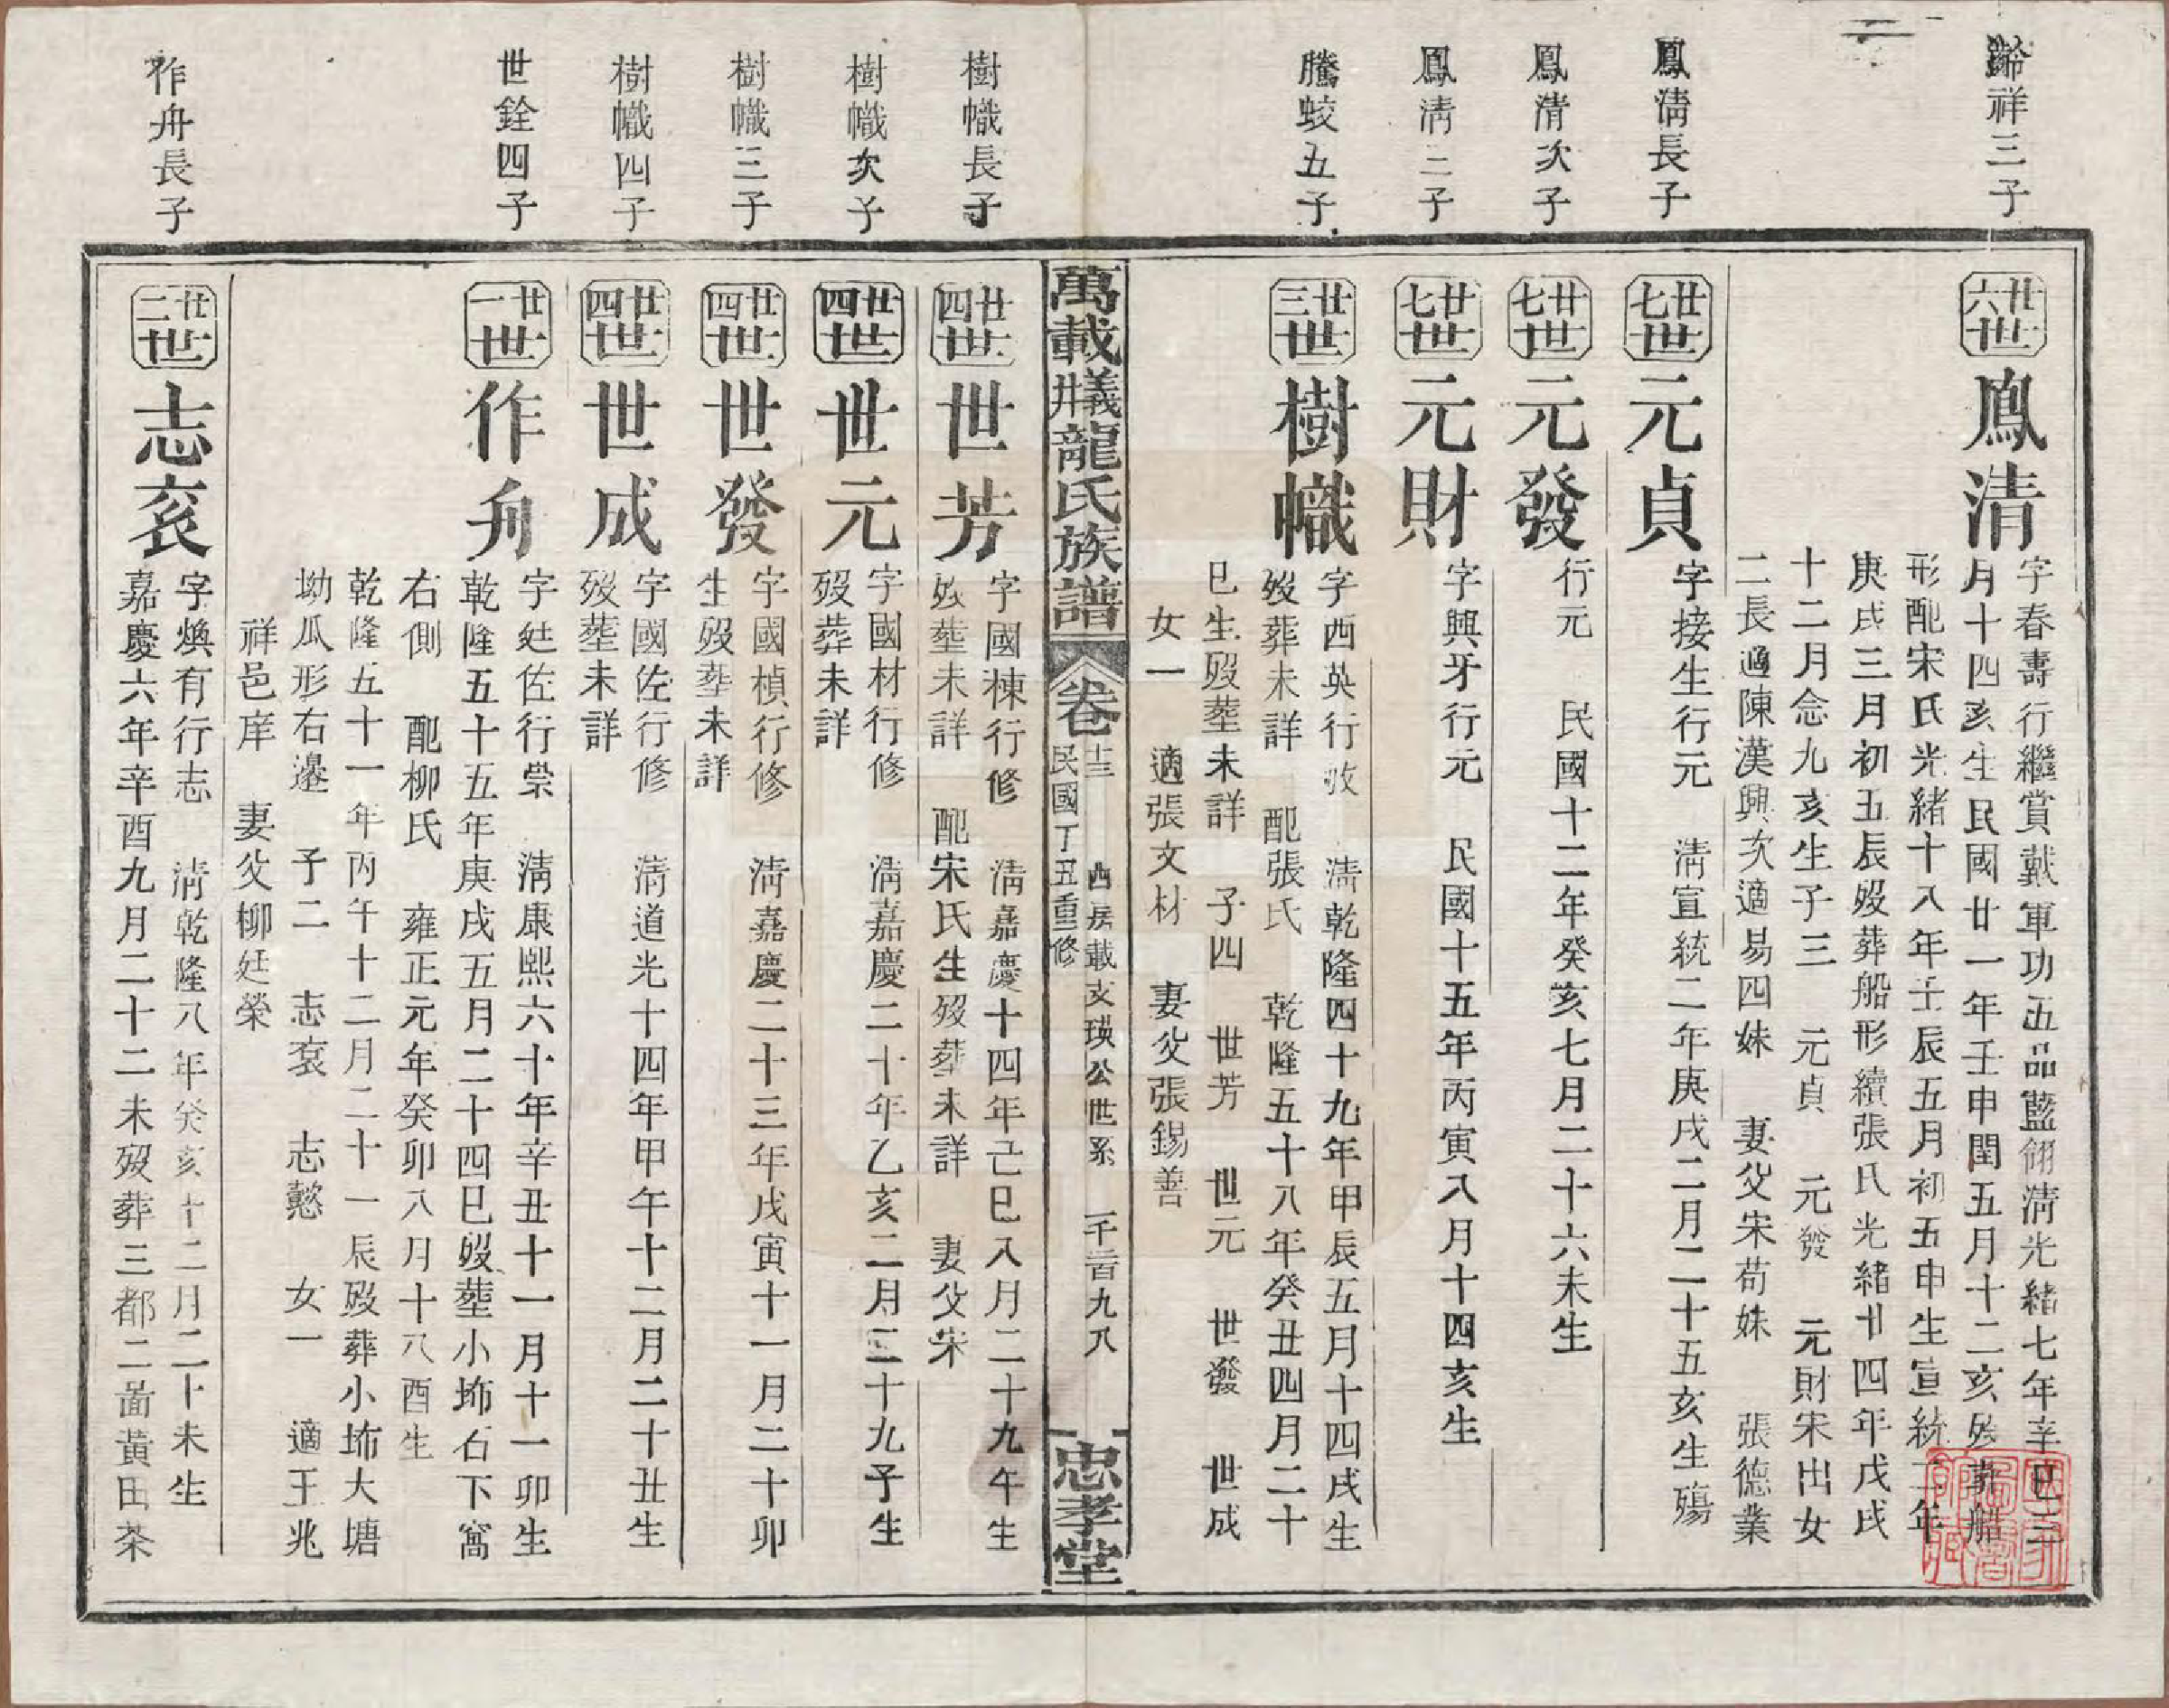 齡祥三子
廿六世
鳳清
字春壽行繼賞戴軍功五品藍翎清光緒七年辛巳三
月十四亥生民國廿一年壬申閏五月十二亥歿葬船
形配宋氏光緒十八年壬辰五月初五申生宣統二年
庚戌三月初五辰歿葬船形續張氏光緒廿四年戊戌
十二月念九亥生子三 元貞 元發 元財宋出女
二長適陳漢興次適易四妹 妻父宋苟妹 張德業
鳳淸長子
廿七世
元貞
字接生行元 淸宣統二年庚戌二月二十五亥生殤
鳳清次子
廿七世
元發
行元 民國十二年癸亥七月二十六未生
鳳淸三子
廿七世
元財
字興牙行元 民國十五年丙寅八月十四亥生
騰蛟五子
廿三世
樹幟
字西英行攻 淸乾隆四十九年甲辰五月十四戌生
歿葬未詳 配張氏 乾隆五十八年癸丑四月二十
巳生歿塟未詳 子四 世芳 世元 世發 世成
女一 適張文材 妻父張錫善
萬載井義龍氏族譜
卷十三
民國丁丑重修
西房載文瑛公世系 一千一百九八
忠孝堂
樹幟長子
廿四世
世芳
字國棟行修 淸嘉慶十四年己巳八月二十九午生
歿塟未詳 配宋氏生歿葬未詳 妻父宋
樹幟次子
廿四世
世元
字國材行修 淸嘉慶二十年乙亥二月三十九子生
歿葬未詳
樹幟三子
廿四世
世發
字國楨行修 淸嘉慶二十三年戊寅十一月二十卯
生歿塟未詳
樹幟四子
廿四世
世成
字國佐行修 淸道光十四年甲午十二月二十丑生
歿塟未詳
世銓四子
廿一世
作舟
字廷佐行崇 淸康熙六十年辛丑十一月十一卯生
乾隆五十五年庚戌五月二十四巳歿塟小㘵石下窩
右側 配柳氏 雍正元年癸卯八月十八酉生
乾隆五十一年丙午十二月二十一辰歿葬小㘵大塘
坳瓜形右邊 子二 志袞 志懿 女一 適王兆
祥邑庠 妻父柳廷榮
作舟長子
廿二世
志袞
字煥有行志 淸乾隆八年癸亥十二月二十未生
嘉慶六年辛酉九月二十二未歿葬三都二啚黃田茶